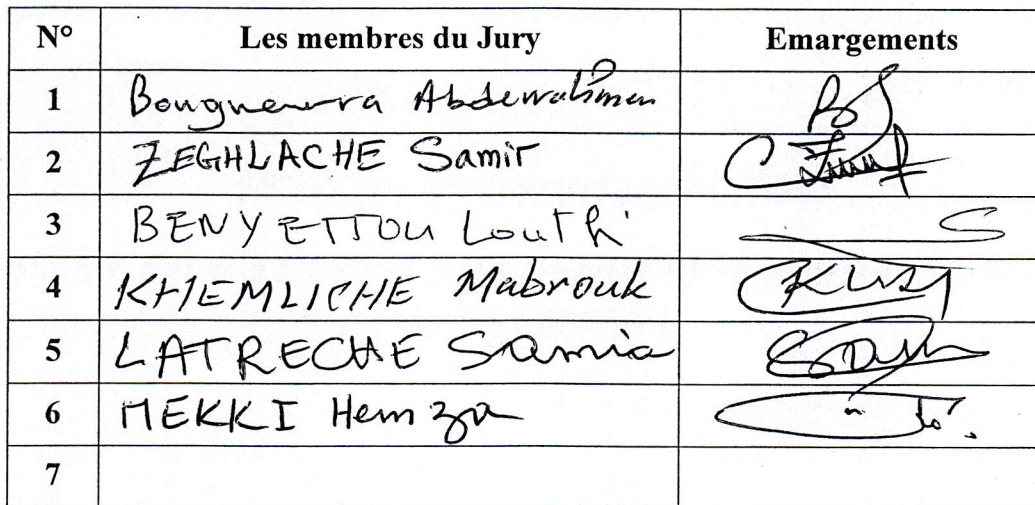 N° Les membres du Jury Emargements
1 Bouguerra Abderrahmen
2 ZEGHLACHE Samir
3 BENYETTOU Louthi
4 KHEMLICHE Mabrouk
5 LATRECHE Samia
6 MEKKI Hemza
7